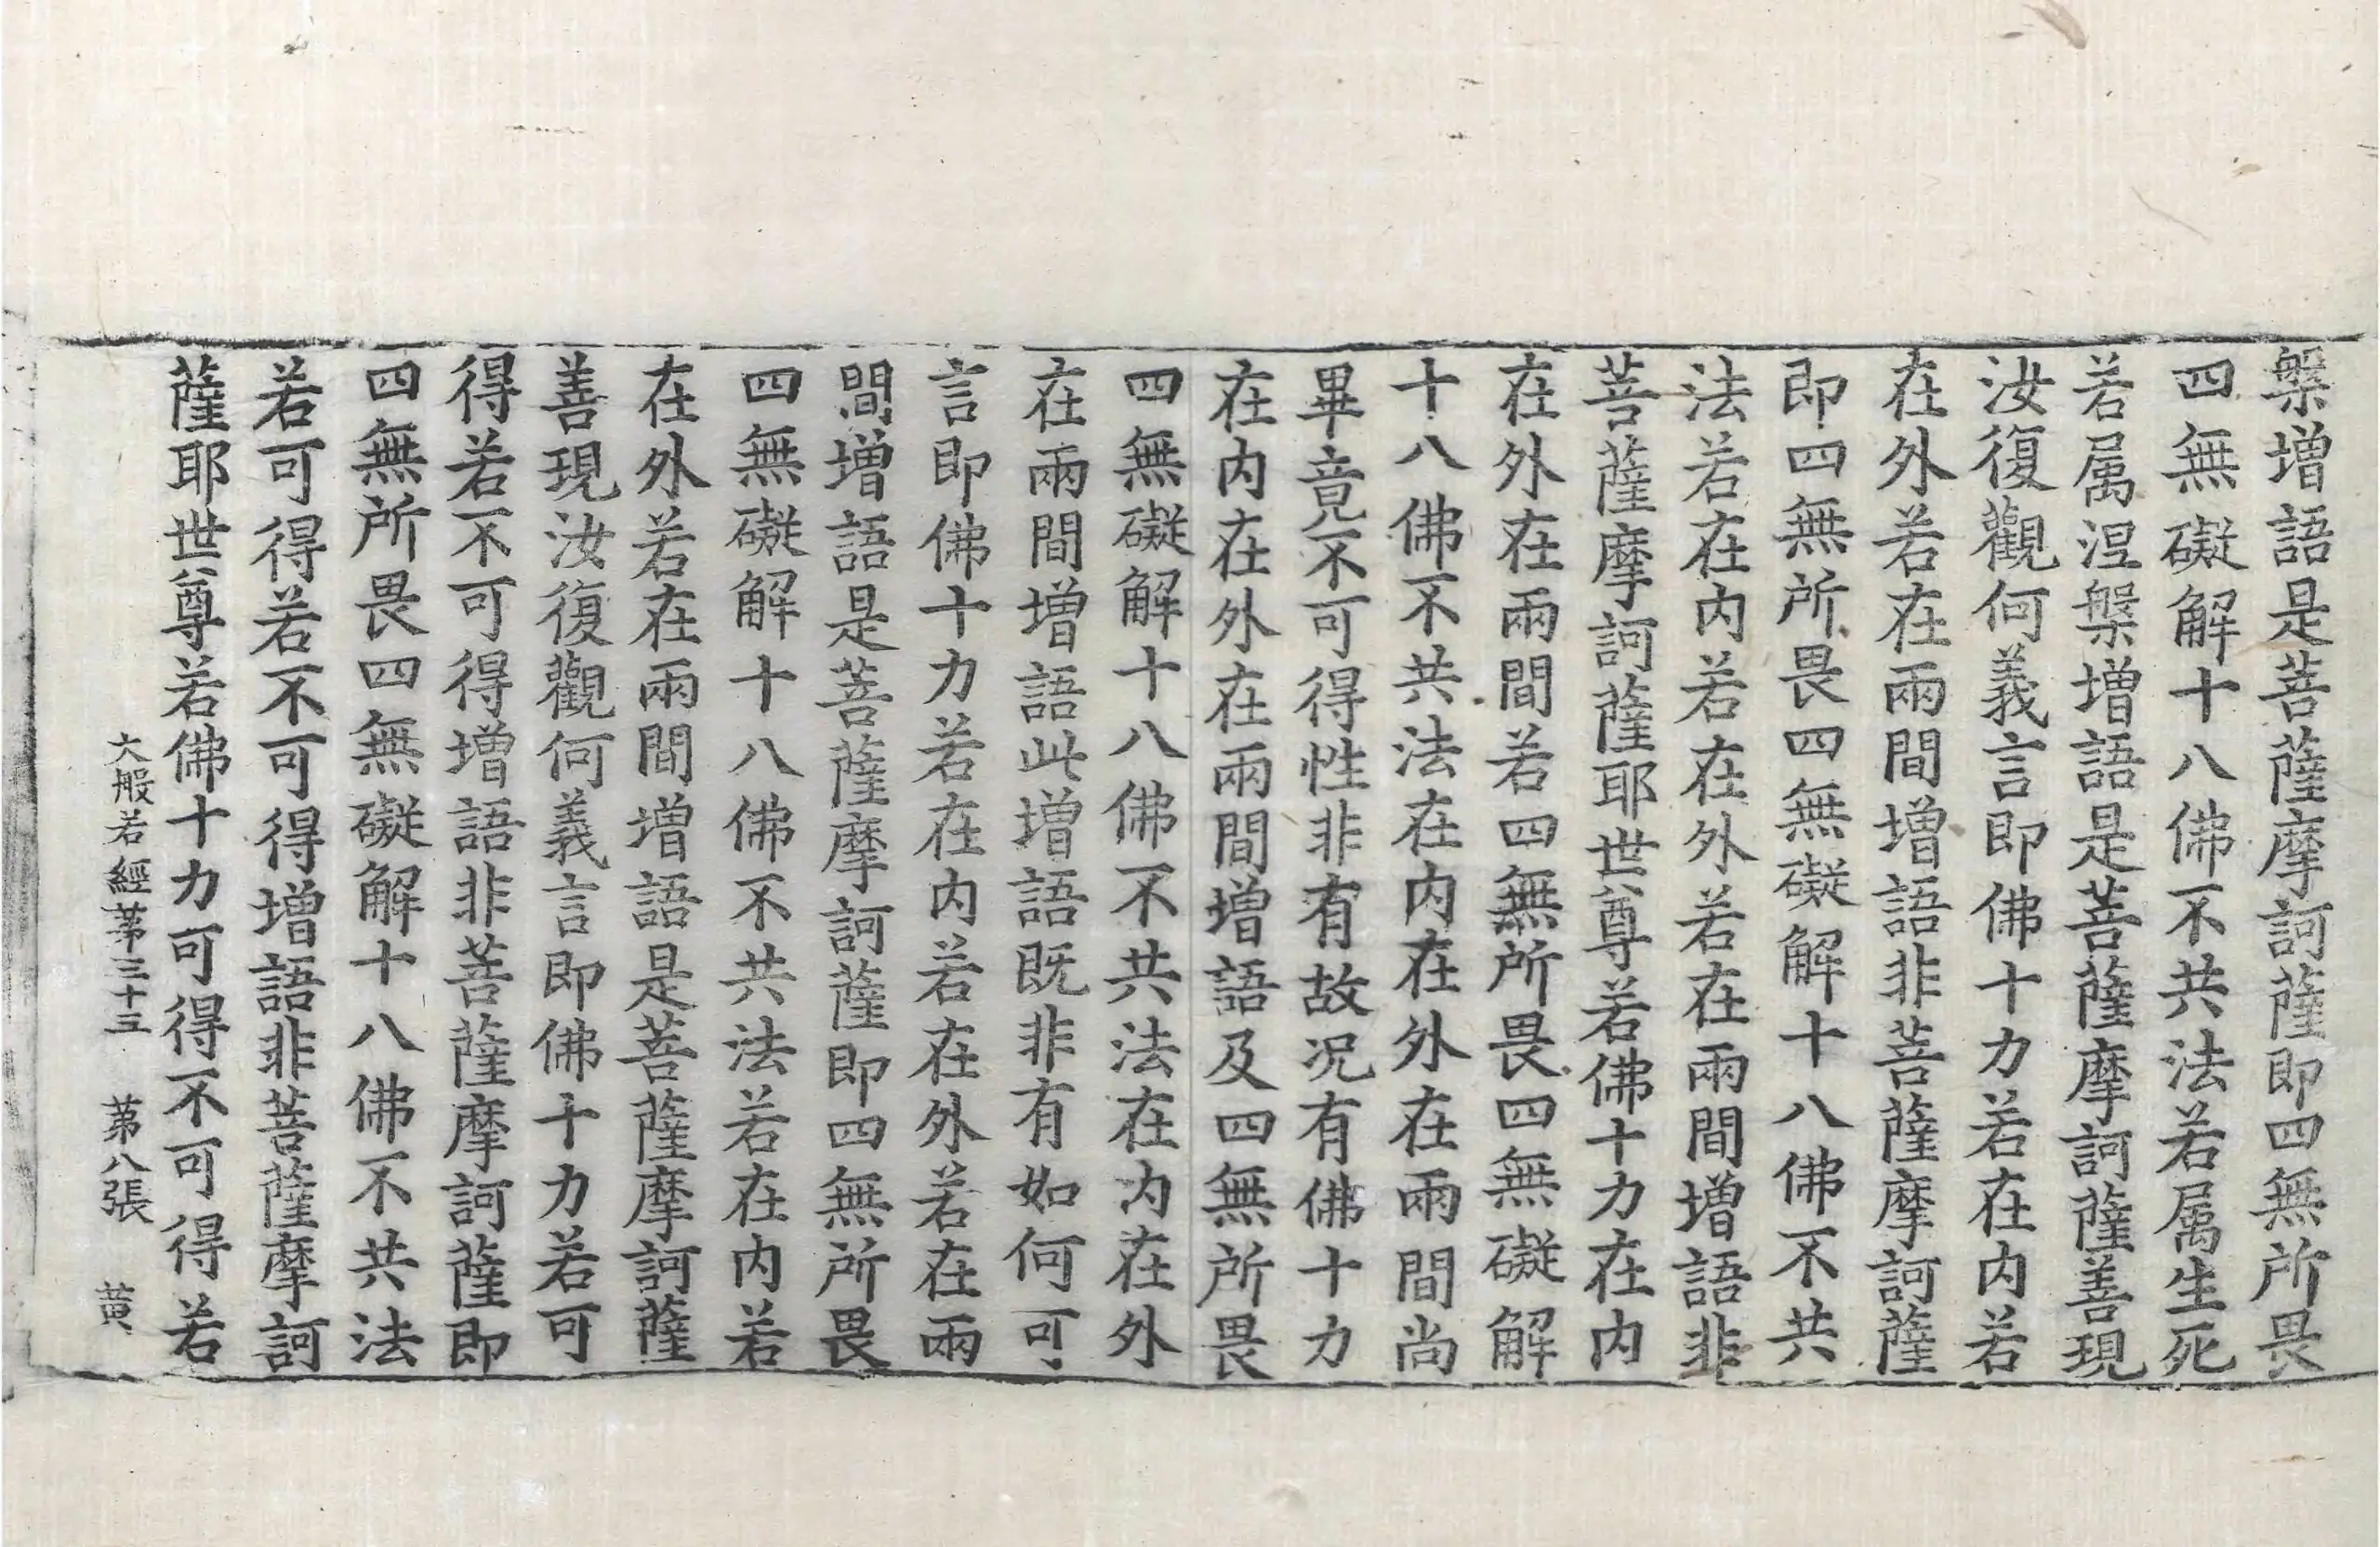 槃增語是菩薩摩訶薩即四無所畏
四無礙解十八佛不共法若属生死
若属涅槃增語是菩薩摩訶薩善現
汝復觀何義言即佛十力若在内若
在外若在兩間增語非菩薩摩訶薩
即四無所畏四無礙解十八佛不共
法若在内若在外若在兩間增語非
菩薩摩訶薩耶世尊若佛十力在内
在外在兩間若四無所畏四無礙解
十八佛不共法在内在外在兩間尚
畢竟不可得性非有故况有佛十力
在内在外在兩間增語及四無所畏
四無礙解十八佛不共法在内在外
在兩間增語此增語既非有如何可
言即佛十力若在内若在外若在兩
間增語是菩薩摩訶薩即四無所畏
四無礙解十八佛不共法若在内若
在外若在兩間增語是菩薩摩訶薩
善現汝復觀何義言即佛十力若可
得若不可得增語非菩薩摩訶薩即
四無所畏四無礙解十八佛不共法
若可得若不可得增語非菩薩摩訶
薩耶世尊若佛十力可得不可得若
大般若經苐三十三 苐八張 黄